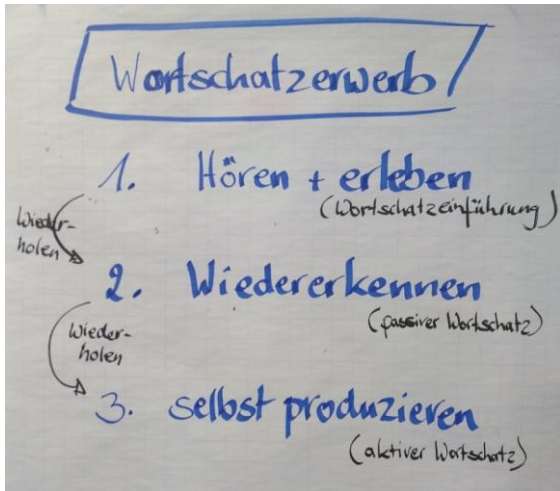 Wortschatzerwerb
1. Hören + erleben
(Wortschatzeinführung)
Wieder-
holen
2. Wiedererkennen
(passiver Wortschatz)
Wieder-
holen
3. selbst produzieren
(aktiver Wortschatz)